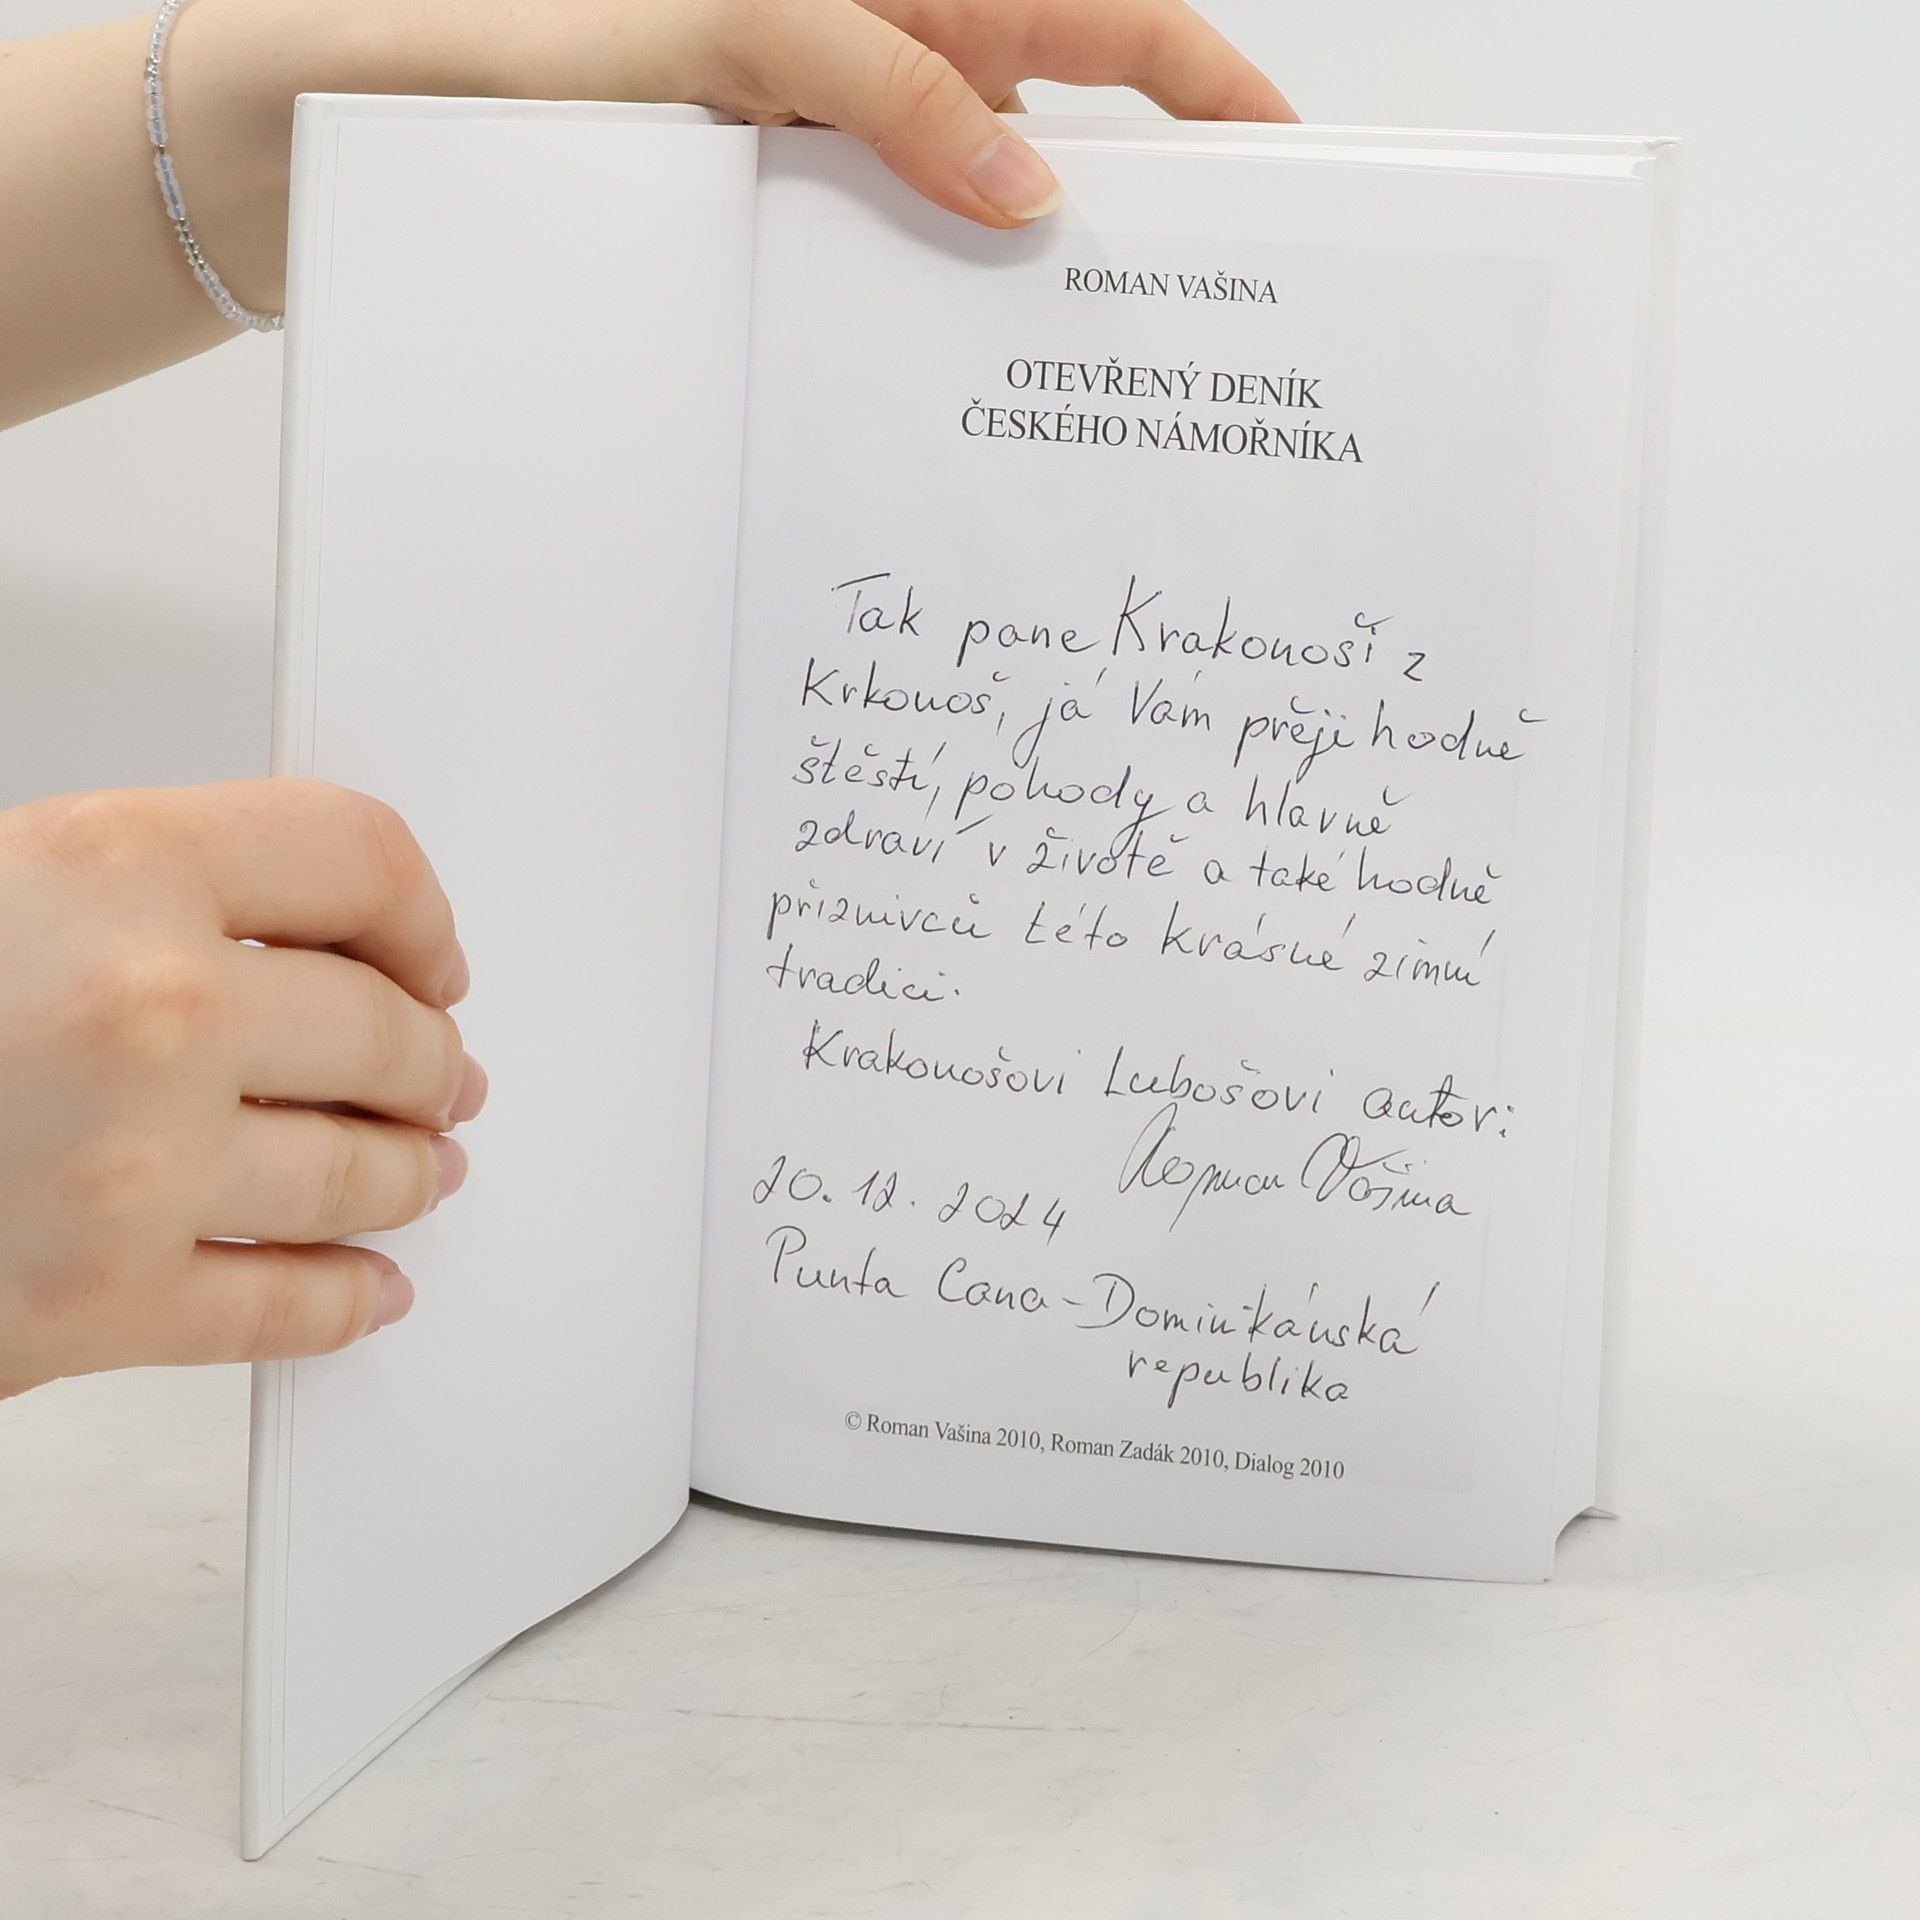 ROMAN VAŠINA
OTEVŘENÝ DENÍK
ČESKÉHO NÁMOŘNÍKA
Tak pane Krakonoši z
Krkonoš, já Vám přěji hodně
štěstí, pohody a hlavně
zdraví v životě a také hodně
přiznivců této krásné zimní
tradici.
Krakonošovi Lubošovi autor:
Roman Vašina
20. 12. 2024
Punta Cana - Dominikánská
republika
© Roman Vašina 2010, Roman Zadák 2010, Dialog 2010